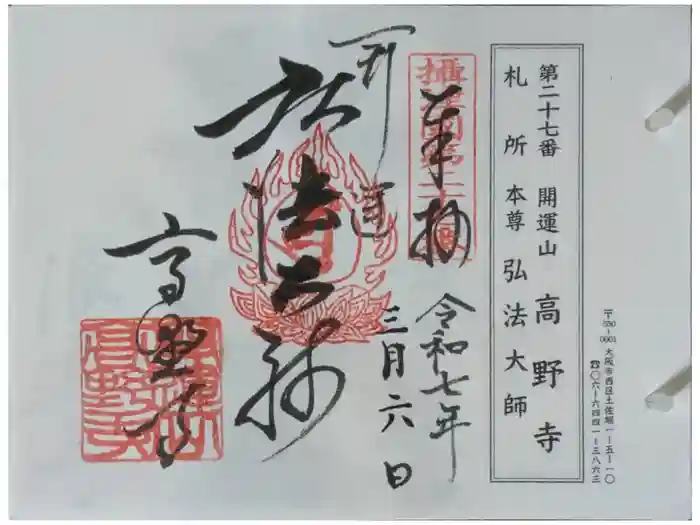 〒550-0001 大阪市西区土佐堀一ー五ー一〇
☎〇六ー六四四一ー三八六三
第二十七番 開運山 高野寺
札所本尊 弘法大師
摂津国第二十七番
奉拝
令和七年
三月六日
開運
弘法大師
高野寺